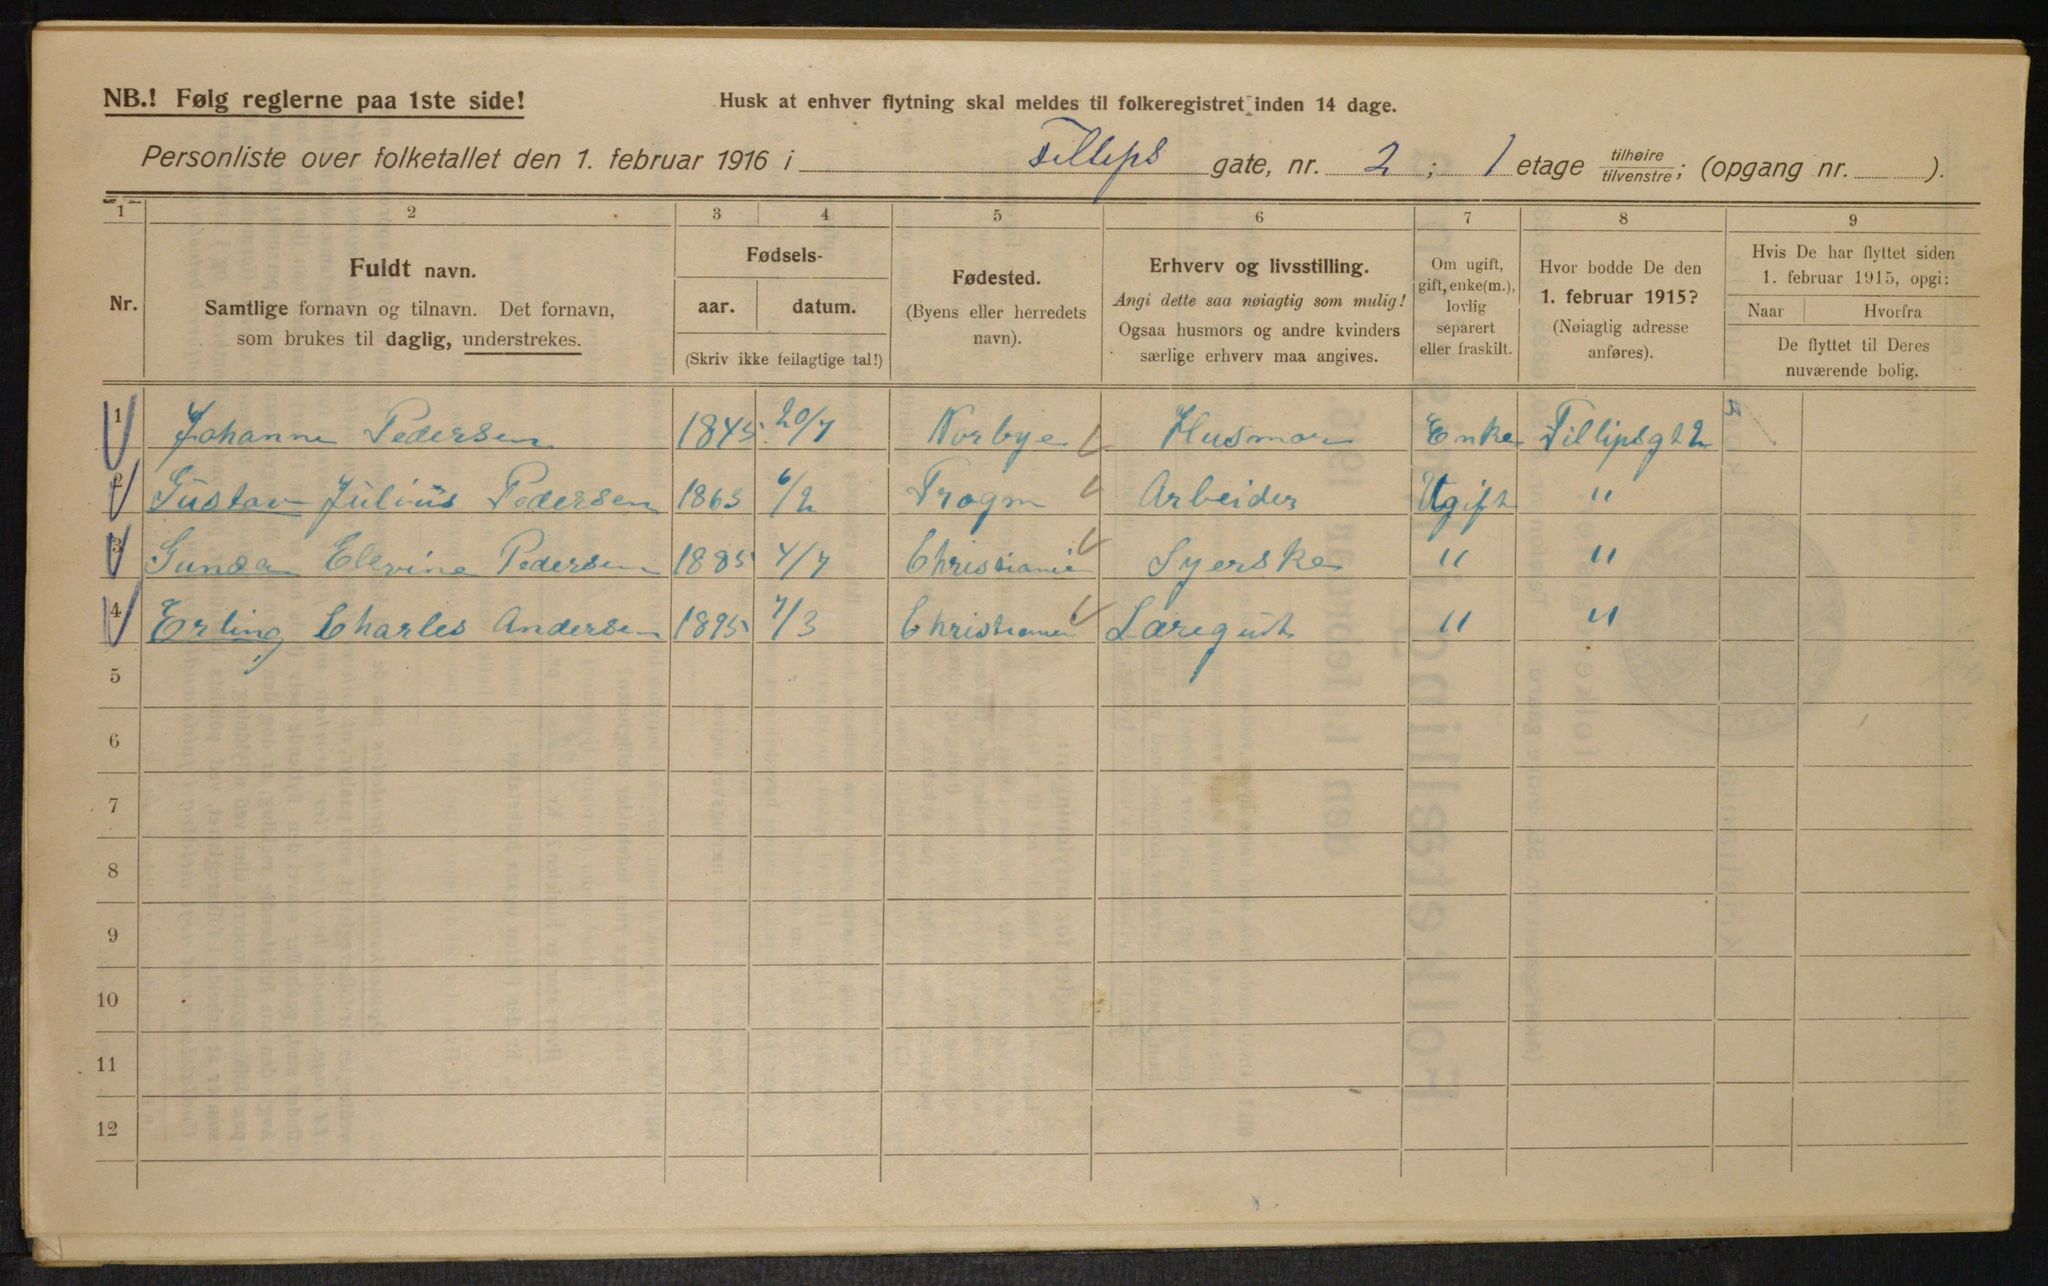 NB.! Følg reglerne paa 1ste side!
Husk at enhver flytning skal meldes til folkeregistret inden 14 dage.
Personliste over folketallet den 1. februar 1916 i Fillips gate, nr. 2 ; 1 etage tilhøire/tilvenstre; (opgang nr. ).
1 2 3 4 5 6 7 8 9
Nr.
Fuldt navn.
Samtlige fornavn og tilnavn. Det fornavn,
som brukes til daglig, understrekes.
Fødsels-
aar. datum.
(Skriv ikke feilagtige tal!)
Fødested.
(Byens eller herredets
navn).
Erhverv og livsstilling.
Angi dette saa nøiagtig som mulig!
Ogsaa husmors og andre kvinders
særlige erhverv maa angives.
Om ugift,
gift, enke(m.),
lovlig
separert
eller fraskilt.
Hvor bodde De den
1. februar 1915?
(Nøiagtig adresse
anføres).
Hvis De har flyttet siden
1. februar 1915, opgi:
Naar Hvorfra
De flyttet til Deres
nuværende bolig.
1 Johanne Pedersen 1845 20/7 Norbye Husmor Enke Fillipsgt 2
2 Gustav Julius Pedersen 1863 6/2 Trogm Arbeider Ugift "
3 Gunda Elevine Pedersen 1885 4/7 Christiania Syerske " "
4 Erling Charles Andersen 1895 7/3 Christiania Læregut " "
5
6
7
8
9
10
11
12